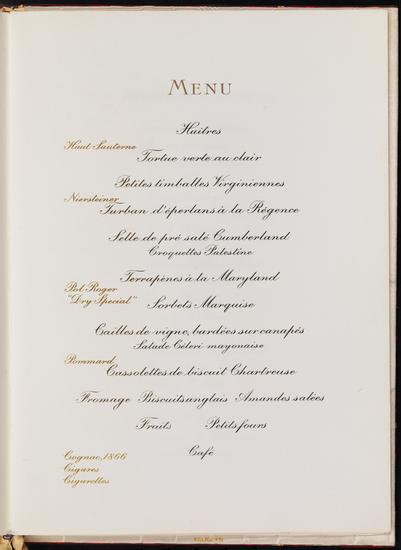 MENU
Huîtres
Haut Sauterne
Tortue verte au clair
Petites timballes Virginiennes
Niersteiner
Turban d'éperlans à la Régence
Selle de pré salé Cumberland
Croquettes Palestine
Terrapènes à la Maryland
Pol Roger
"Dry Special"
Sorbets Marquise
Cailles de vigne, bardées sur canapés
Salade Céleri mayonaise
Pommard
Cassolettes de biscuit Chartreuse
Fromage Biscuits anglais Amandes salées
Fruits Petits fours
Café
Cognac, 1866
Cigares
Cigarettes